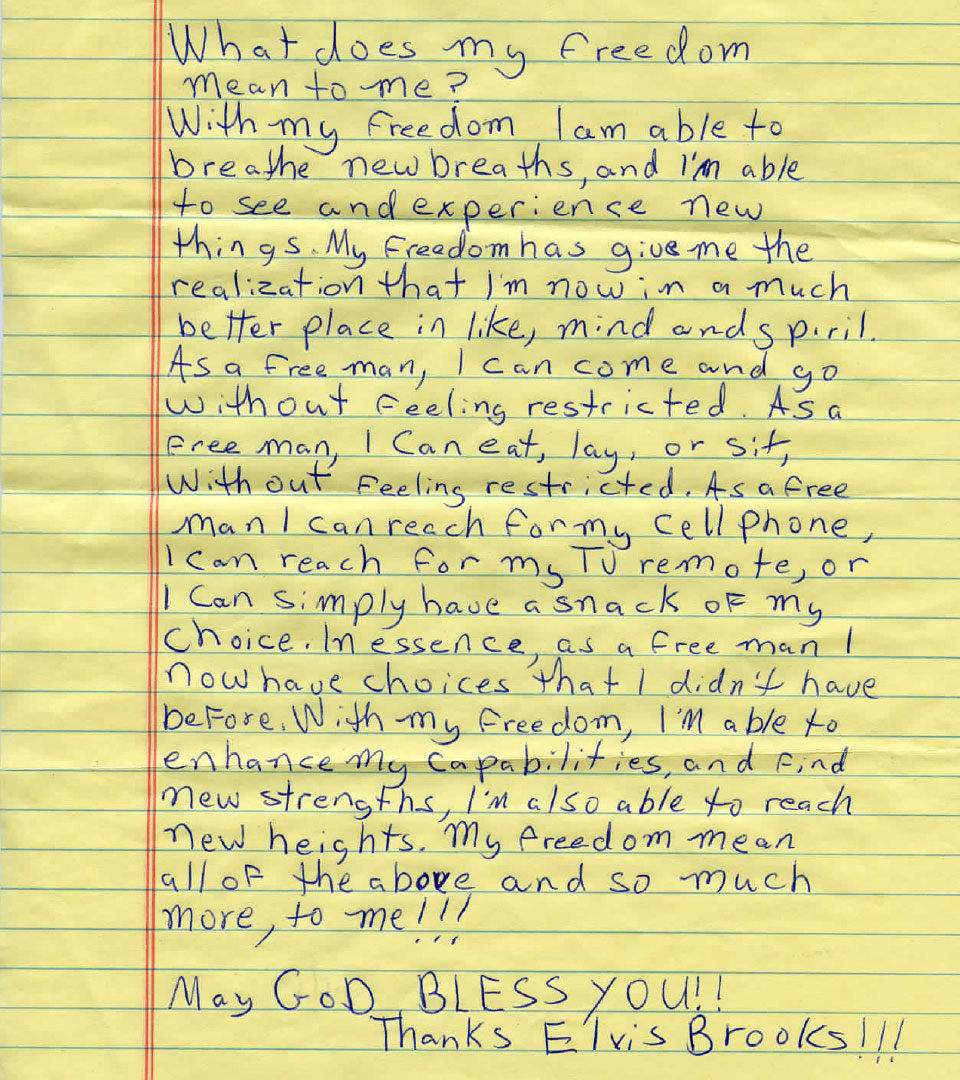 What does my freedom
mean to me?
With my freedom I am able to
breathe new breaths, and I'm able
to see and experience new
things. My freedom has give me the
realization that I'm now in a much
better place in like, mind and spiril.
As a free man, I can come and go
without feeling restricted. As a
free man, I can eat, lay, or sit,
without feeling restricted. As a free
man I can reach for my cell phone,
I can reach for my TV remote, or
I can simply have a snack of my
choice. In essence, as a free man I
now have choices that I didn't have
before. With my freedom, I'm able to
enhance my capabilities, and find
new strengths, I'm also able to reach
new heights. My freedom mean
all of the above and so much
more, to me!!!
May GOD BLESS YOU!!
Thanks Elvis Brooks!!!